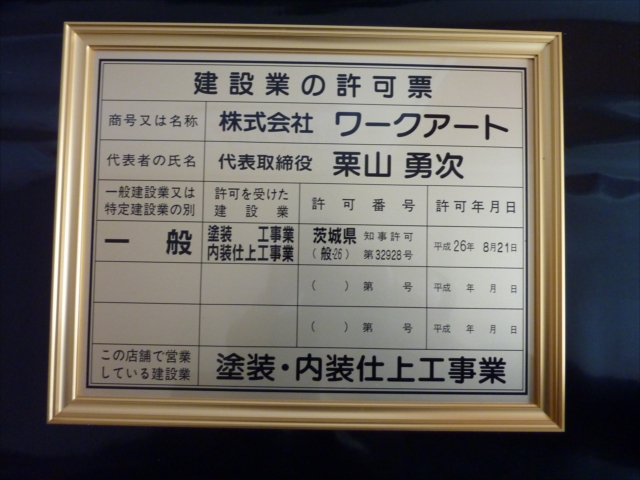 建設業の許可票
商号又は名称 株式会社 ワークアート
代表者の氏名 代表取締役 栗山 勇次
一般建設業又は 許可を受けた 許可番号 許可年月日
特定建設業の別 建設業
一般 塗装 工事業 茨城県 知事許可 平成26年 8月21日
内装仕上工事業 (般-26) 第32928号
( ) 第 号 平成 年 月 日
( ) 第 号 平成 年 月 日
この店舗で営業 塗装・内装仕上工事業
している建設業